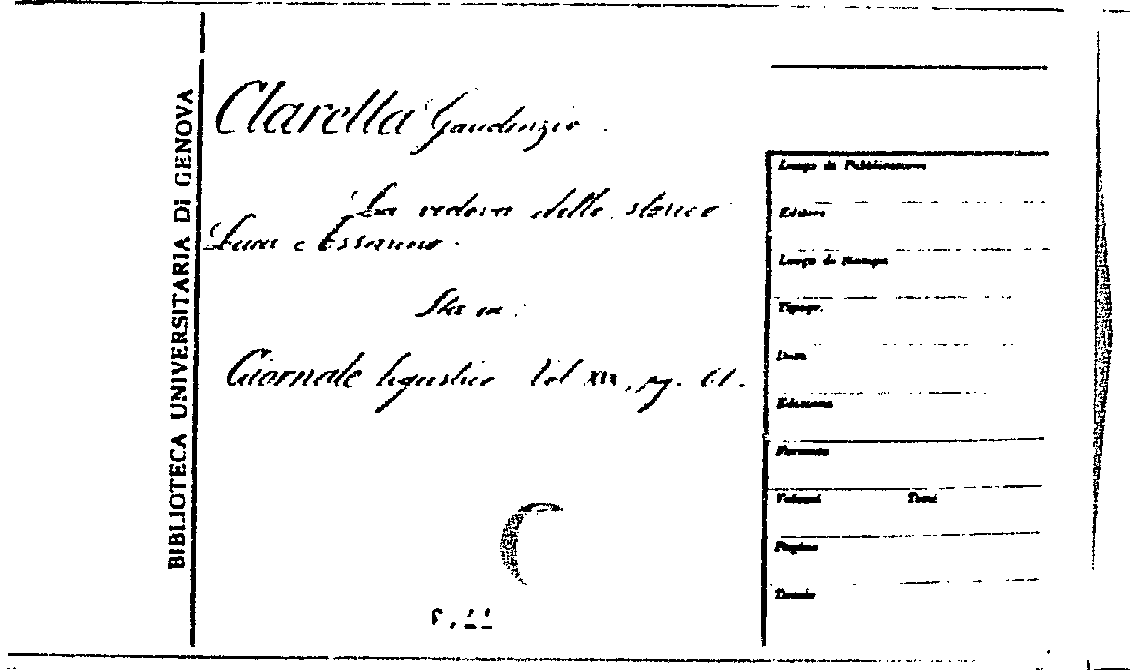 BIBLIOTECA UNIVERSITARIA DI GENOVA
Claretta Gaudenzio.
La vedova dello storico
Luca Assarino.
Sta in:
Giornale ligustico Vol XIX, pg. 61.
Luogo di Pubblicazione
Editore
Luogo di Stampa
Tipogr.
Data
Edizione
Formato
Volumi Tomi
Pagine